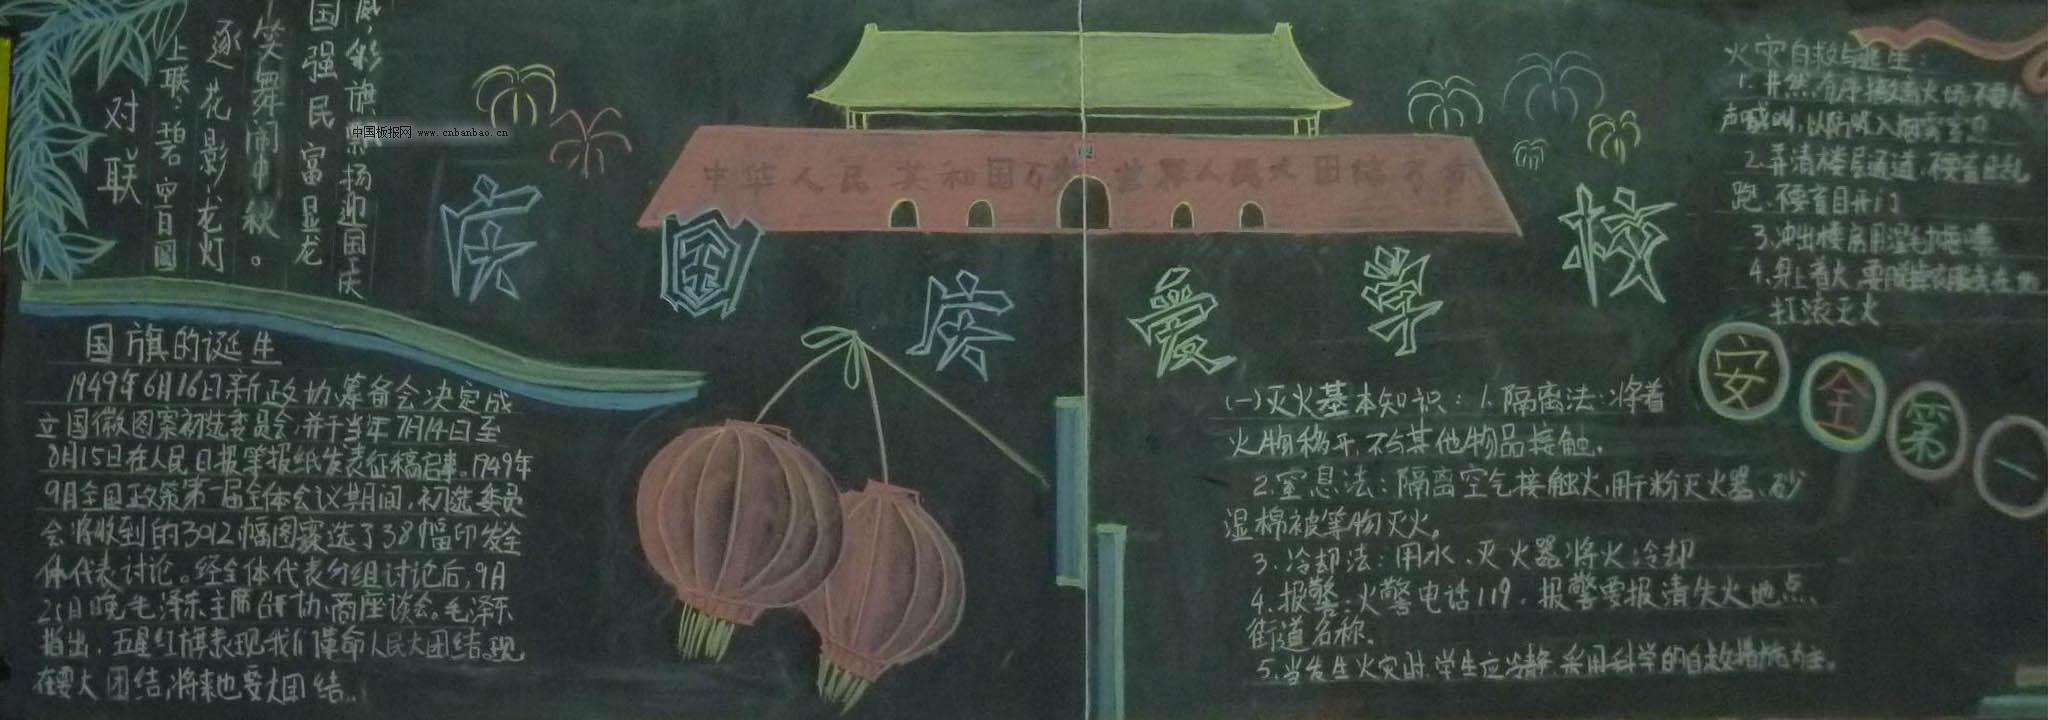 对联
上联:碧空月圆
逐花影龙灯
笑舞闹中秋。
国强民富显龙
威,彩旗飘扬迎国庆
中国板报网 www.cnbanbao.cn
中华人民共和国万岁 世界人民大团结万岁
庆国庆爱学校
国旗的诞生
1949年6月16日新政协筹备会决定成
立国徽图案初选委员会,并于当年7月14日至
8月15日在人民日报等报纸发表征稿启事。1949年
9月全国政策第一届全体会议期间,初选委员
会将收到的3012幅图案选了38幅印发全
体代表讨论。经全体代表分组讨论后,9月
25日晚毛泽东主席召开协商座谈会。毛泽东
指出,五星红旗表现我们革命人民大团结。现
在要大团结,将来也要大团结。
(一)灭火基本知识:1.隔离法:将着
火物移开,不与其他物品接触。
2.窒息法:隔离空气接触火,用干粉灭火器、砂
湿棉被等物灭火。
3.冷却法:用水、灭火器将火冷却
4.报警:火警电话119,报警要报清失火地点、
街道名称。
5.当发生火灾时,学生应冷静,采用科学的自救措施为主。
火灾自救与逃生:
1.井然有序撤离火场,不要大
声喊叫,以防吸入烟雾窒息
2.弄清楼层通道,不要盲目乱
跑,不要盲目开门
3.冲出楼房用湿毛
4.身上着火,要
打滚灭火
安全第一